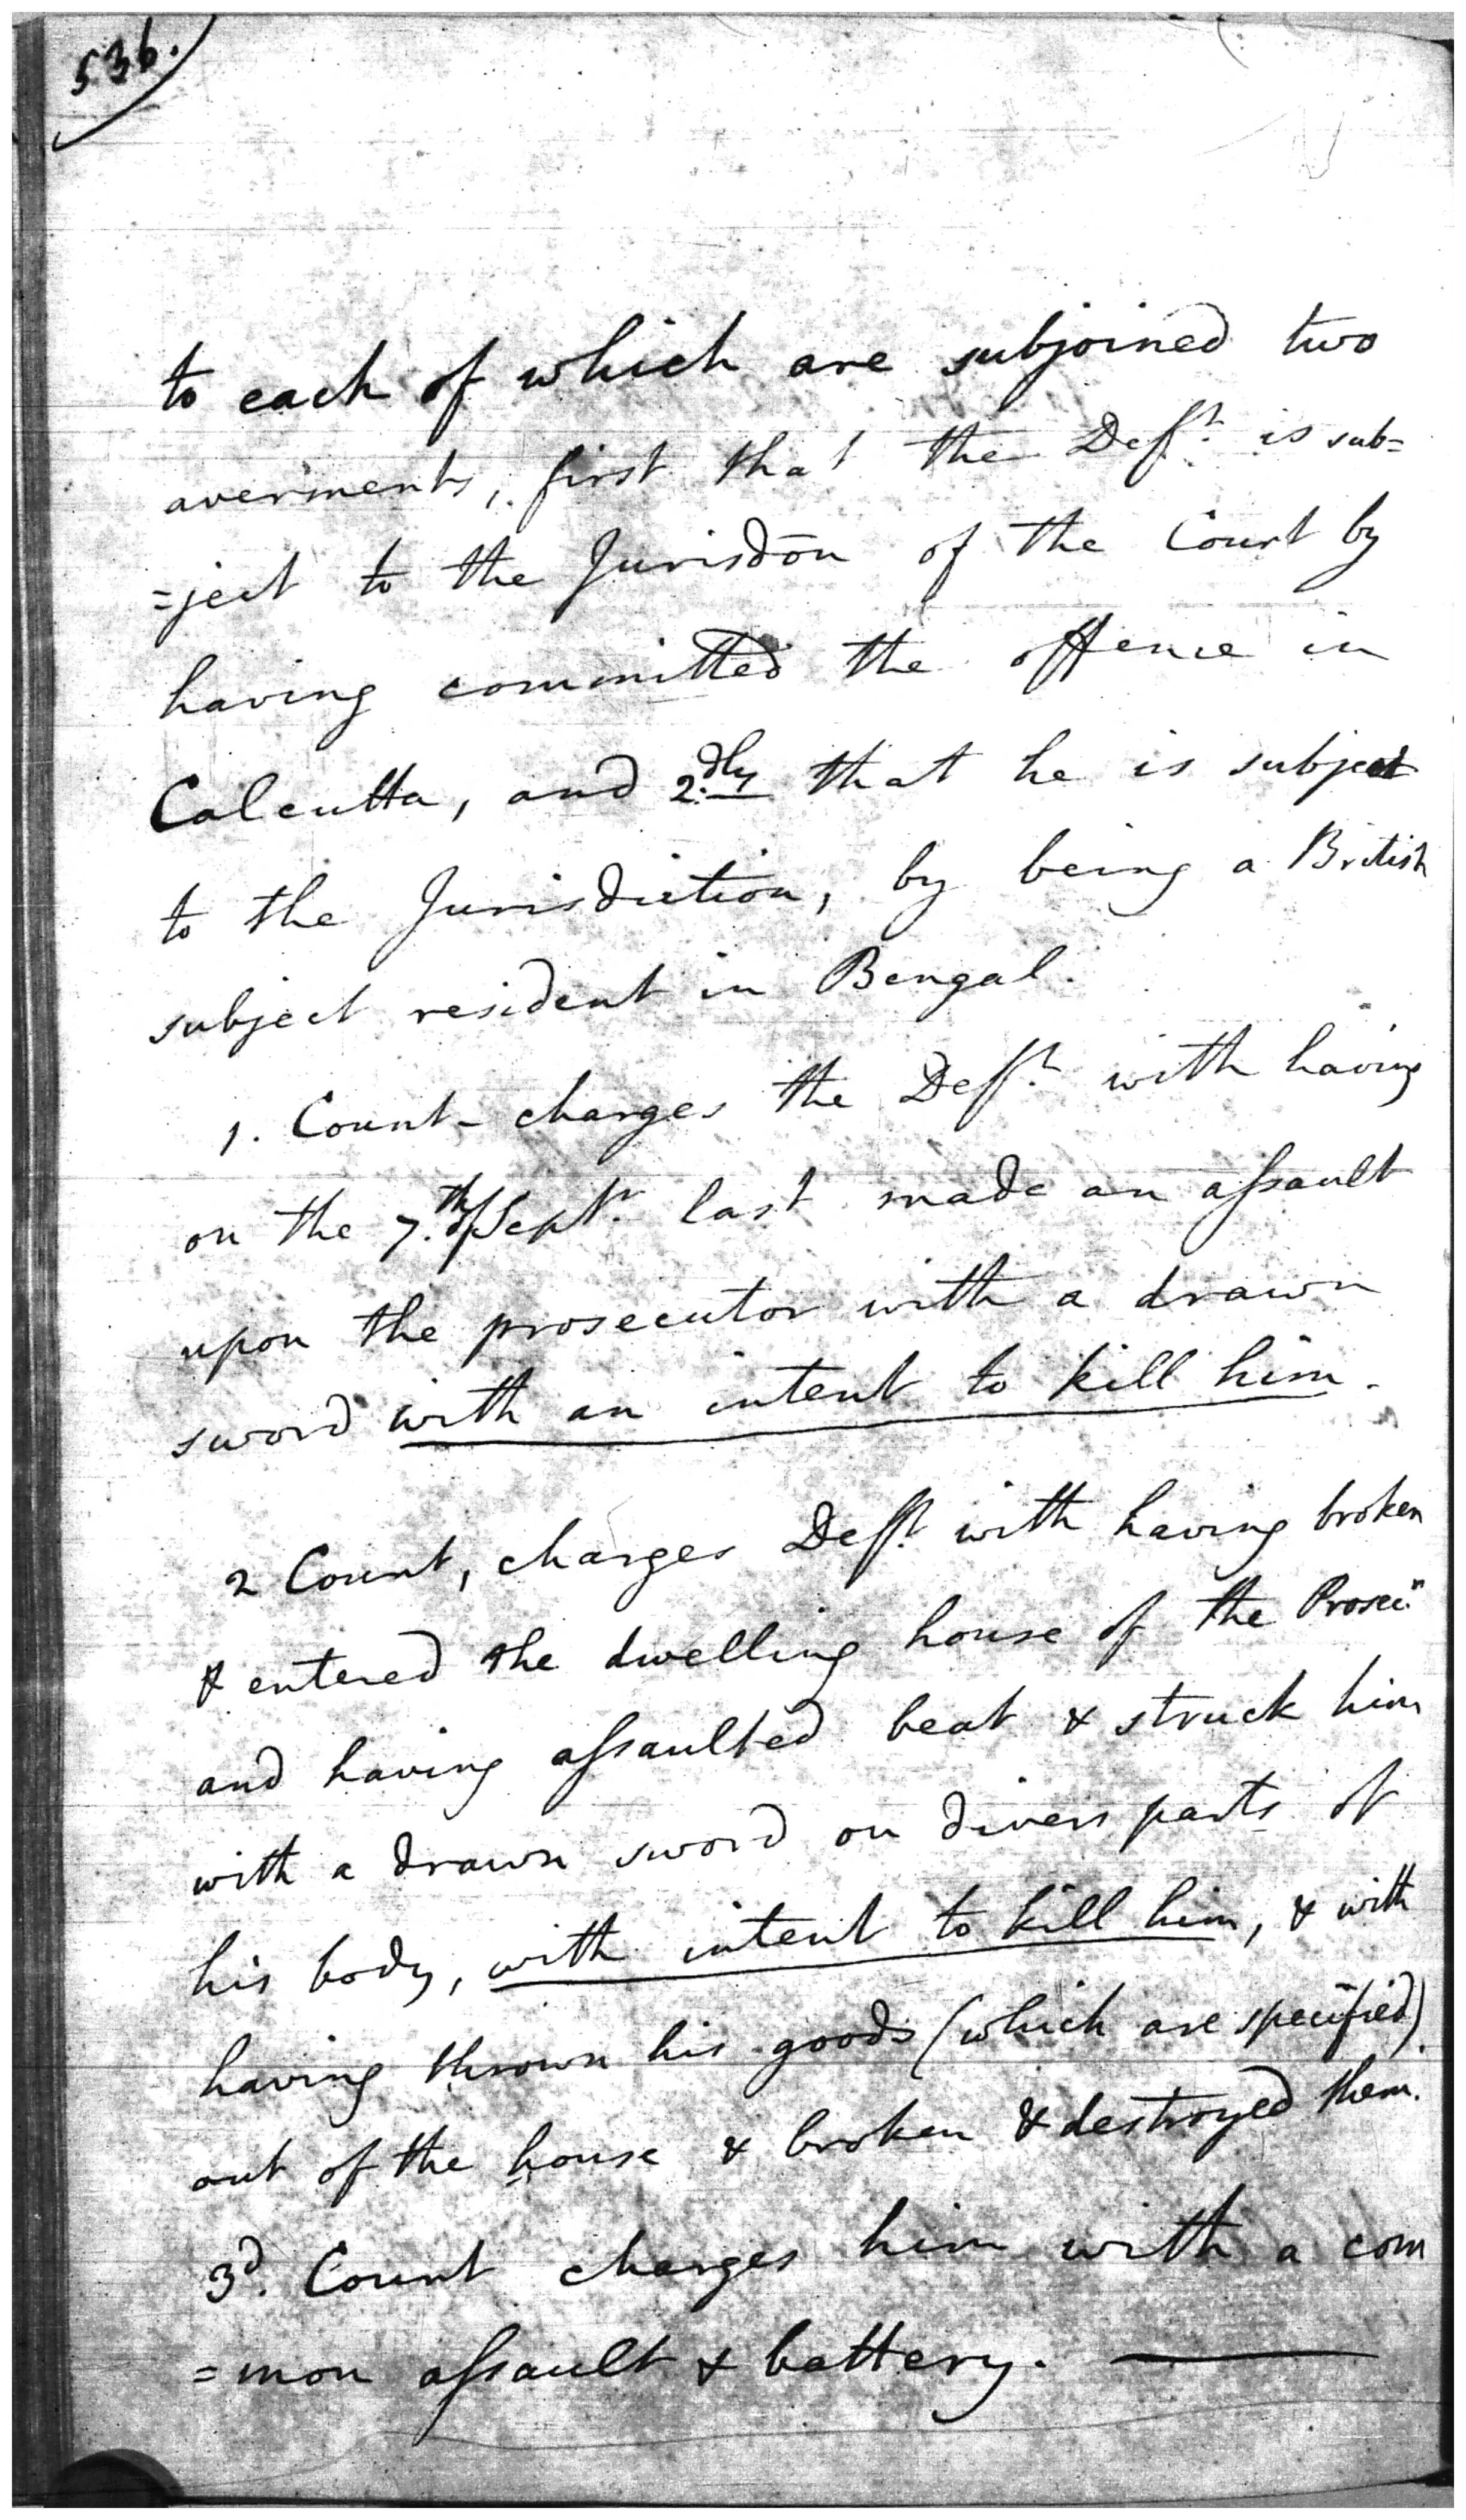 536.
to each of which are subjoined two
averments, first that the Defft. is sub=
=ject to the Jurisdōn of the Court by
having committed the offence in
Calcutta, and 2.dly that he is subject
to the Jurisdiction, by being a British
subject resident in Bengal.
1. Count - charges the Defft. with having
on the 7.th of Septr. last made an assault
upon the prosecutor with a drawn
sword with an intent to kill him.
2 Count, charges Defft. with having broken
& entered the dwelling house of the Prosecr.
and having assaulted beat & struck him
with a drawn sword on divers parts of
his body, with intent to kill him, & with
having thrown his goods (which are specified)
out of the house & broken & destroyed them.
3d. Count charges him with a com
=mon assault & battery.